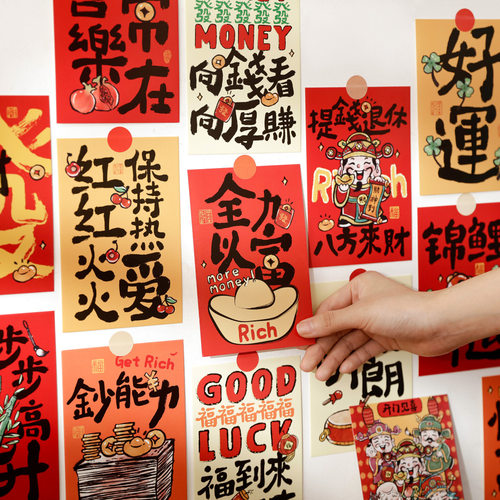 喜樂
常在
發發發發發
MONEY
向錢看
向厚賺
提錢退休
Rich
八方來財
好運
發
红红火火
保持热爱
全力以富
more money!
Rich
錦鯉
步步高升
Get Rich
鈔能力
GOOD
福福福福福
LUCK
福到來
朗
开门见喜